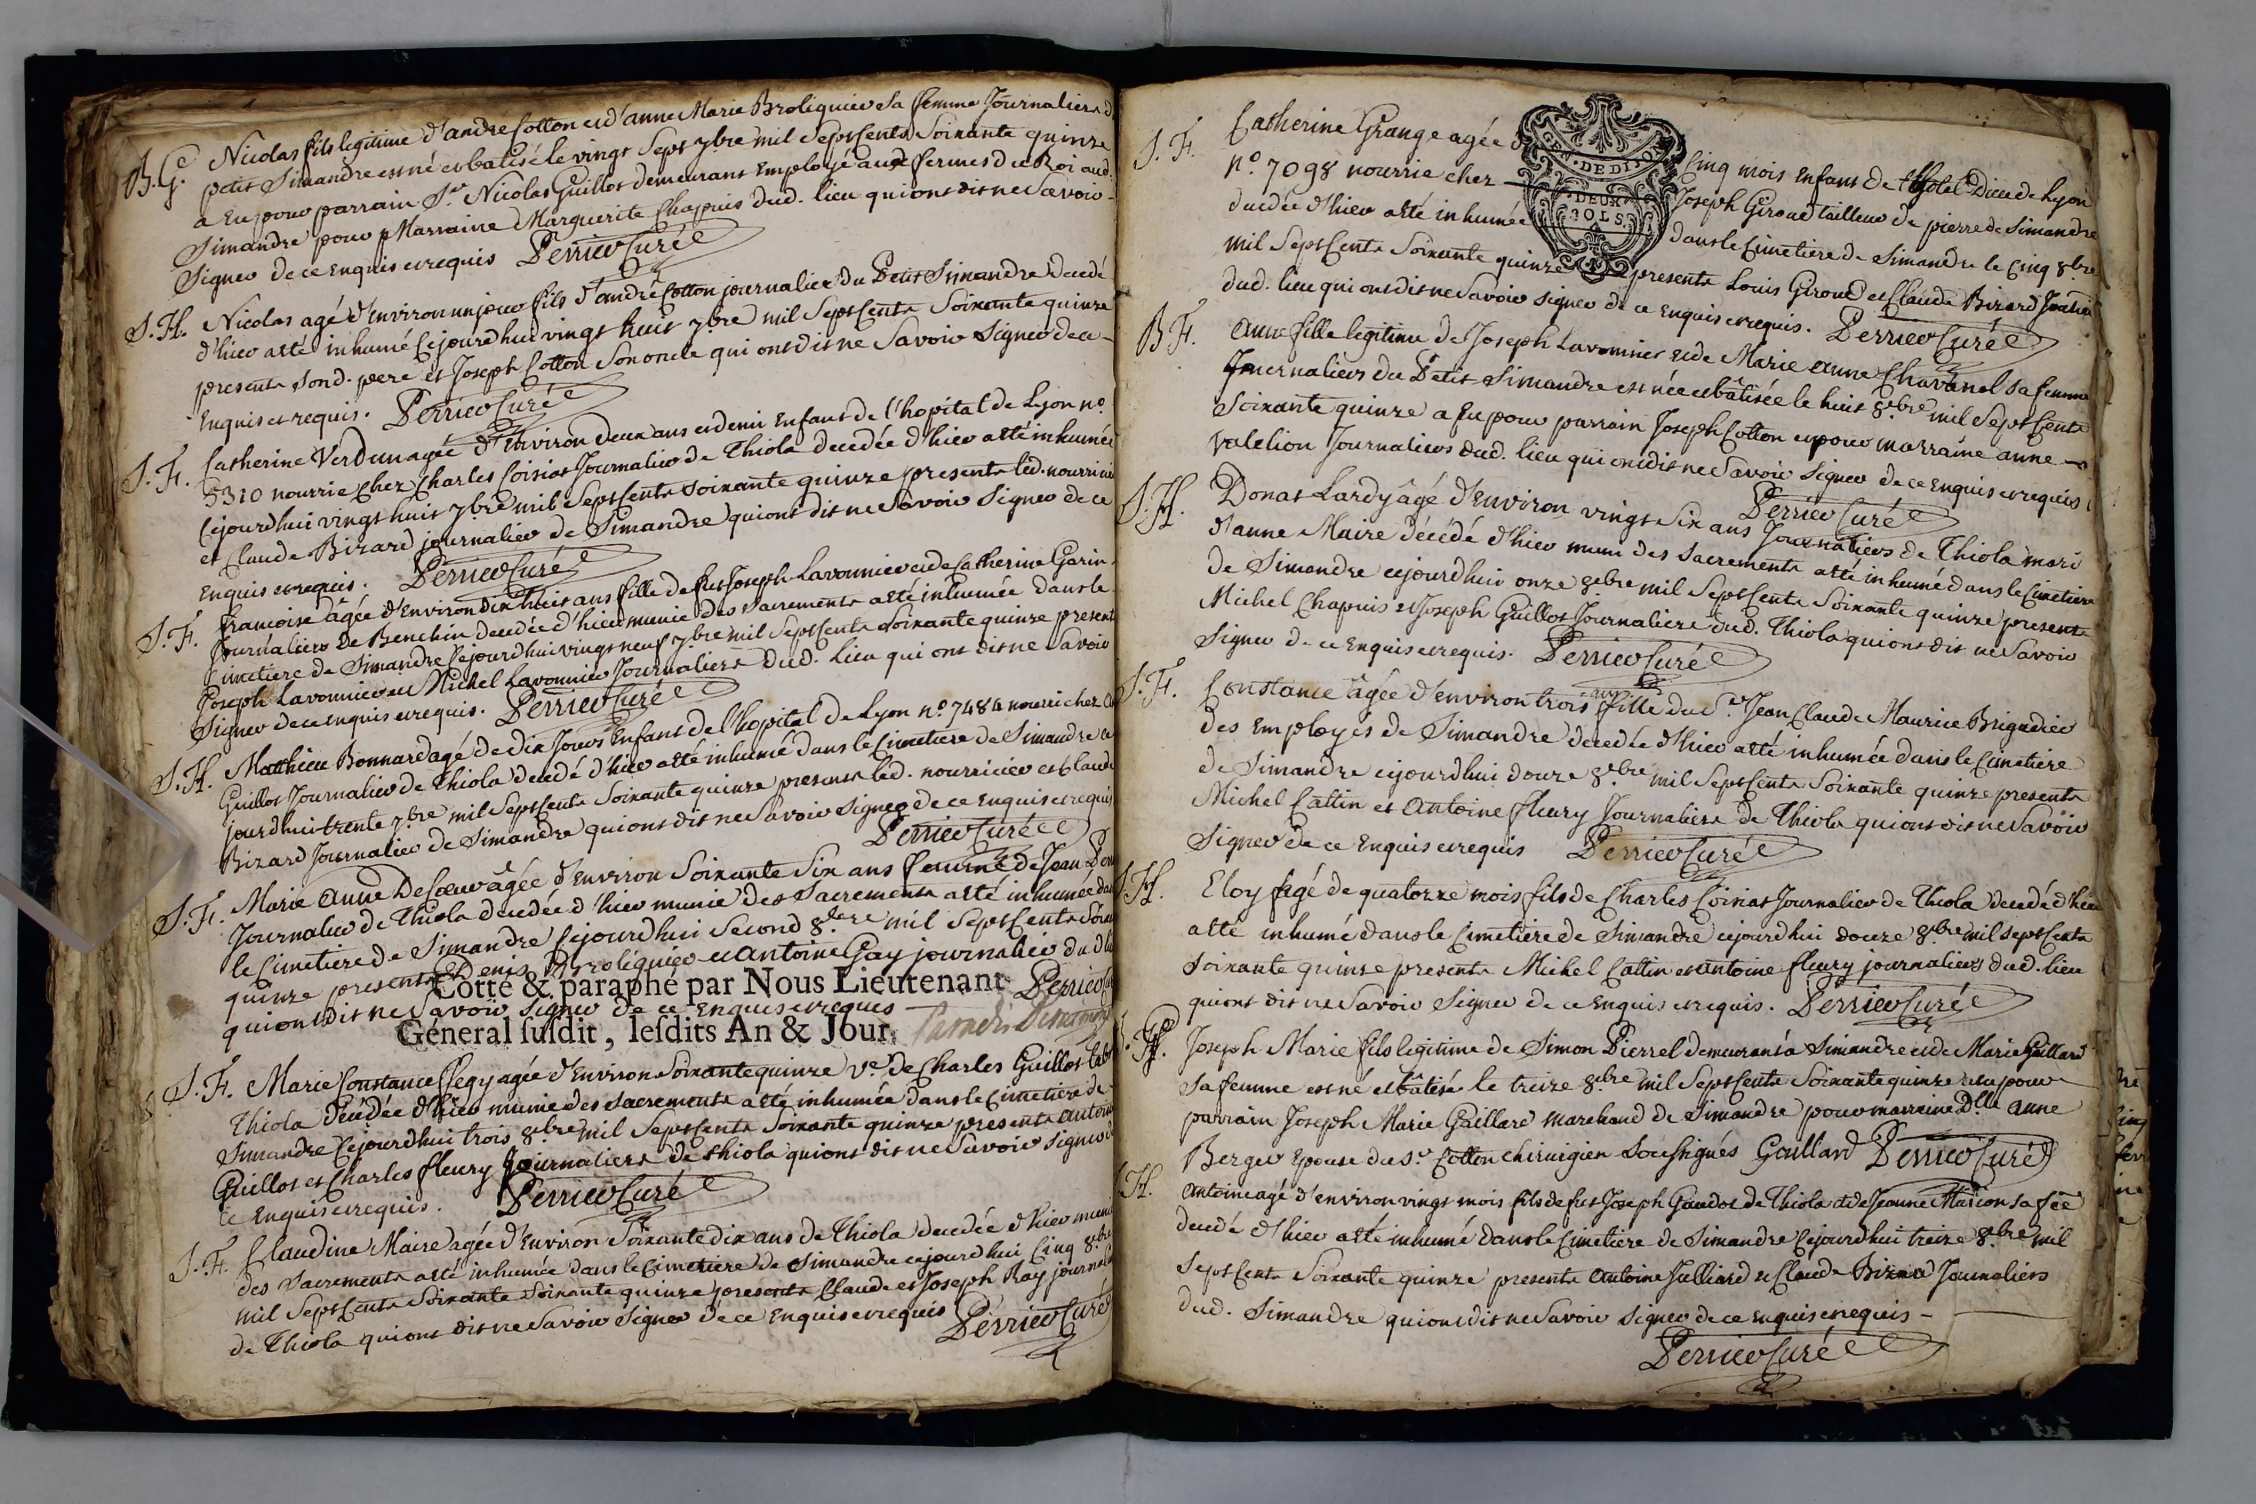 B.G. Nicolas fils legitime d'andre Cotton et d'anne Marie Broliquier sa femme Journaliers d
petit Simandre est né et batisé le vingt Sept 7bre mil Sept Cents Soixante quinze
a Eu pour parrain Sr. Nicolas Guillot demeurant Employé aux fermes du Roi aud.
Simandre pour Marraine Marguerite Chapuis dud. lieu qui ont dit ne Savoir
Signer de ce Enquis et requis Perrier Curé
S.H. Nicolas agé d'Environ un jour fils d'andré Cotton journalier du Petit Simandre decedé
d'hier a eté inhumé Cejourd'hui vingt huit 7bre mil Sept Cents Soixante quinze
presents Sond. pere et Joseph Cotton Son oncle qui ont dit ne Savoir Signer de ce
Enquis et requis. Perrier Curé
S.F. Catherine Verdun agée d'Environ deux ans et demi Enfant de l'hopital de Lyon no.
5310 nourrie Chez Charles Coisiat Journalier de Thiola decedée d'hier a eté inhumée
Cejourd'hui vingt huit 7bre mil Sept Cents Soixante quinze presents led. nourricier
et Claude Bizard journalier de Simandre qui ont dit ne Savoir Signer de ce
Enquis et requis. Perrier Curé
S.F. francoise âgée d'Environ dix huit ans fille de fut Joseph Lavonnier et de Catherine Garin
Journaliers de Benchin decedée d'hier munie des Sacrements a eté inhumée dans le
Cimetiere de Simandre Cejourd'hui vingt neuf 7bre mil Sept Cents Soixante quinze present
Joseph Lavonnier et Michel Lavonnier Journaliers dud. Lieu qui ont dit ne Savoir
Signer de ce Enquis et requis. Perrier Curé
S.H. Matthieu Bonnard agé de dix Jours Enfant de l'hopital de Lyon no. 7484 nourri chez
Guillot Journalier de Thiola decedé d'hier a eté inhumé dans le Cimetiere de Simandre ce
jourd'hui trente 7bre mil Sept Cents Soixante quinze presents led. nourricier et Claude
Bizard Journalier de Simandre qui ont dit ne Savoir Signer de ce Enquis et requis
Perrier Curé
S.F. Marie Anne De Coeur âgée d'Environ Soixante Six ans femme de Jean
Journalier de Thiola decedée d'hier munie des Sacrements a eté inhumée da
le Cimetiere de Simandre Cejourd'hui Second 8bre mil Sept Cents Soixan
quinze presents Denis Broliquier et Antoine Gay journalier dud li
Cotté & paraphé par Nous Lieutenant Perrier Cu
qui ont dit ne Savoir Signer de ce Enquis et requis
Géneral susdit, lesdits An & Jour.
S.F. Marie Constance agée d'Environ Soixante quinze Ve. de Charles Guillot
Thiola decedée d'hier munie des Sacrements a eté inhumée dans le Cimetiere de
Simandre Cejourd'hui trois 8bre mil Sept Cents Soixante quinze presents antoine
Guillot et Charles fleury Journaliers de thiola qui ont dit ne Savoir Signer d
ce Enquis et requis. Perrier Curé
S.F. Claudine Maire agée d'Environ Soixante dix ans de Thiola decedée d'hier muni
des Sacrements a eté inhumée dans le Cimetiere de Simandre cejourd'hui Cinq 8bre
mil Sept Cents Soixante Soixante quinze presents Claude et Joseph Ray journali
de Thiola qui ont dit ne Savoir Signer de ce Enquis et requis Perrier Curé
S.F. Catherine Grange agée de Cinq mois Enfant de l'Hotel Dieu de Lyon
GEN. DE DIJON
DEUX SOLS
no. 7098 nourrie chez Joseph Giroud tailleur de pierre de Simandre
decedée d'hier a eté inhumée dans le Cimetiere de Simandre le Cinq 8bre
mil Sept Cents Soixante quinze presents Louis Giroud et Claude Bizard
dud. lieu qui ont dit ne Savoir Signer de ce Enquis et requis. Perrier Curé
B.F. Anne fille legitime de Joseph Lavonnier et de Marie Anne Chavanel sa femme
Journaliers du Petit Simandre est née et bâtisée le huit 8bre mil Sept Cents
Soixante quinze a Eu pour parrain Joseph Cotton et pour marraine anne
Valelion Journaliers dud. lieu qui ont dit ne Savoir Signer de ce Enquis et requis
Perrier Curé
S.H. Donat Lardy âgé d'Environ vingt Six ans Journaliers de Thiola mari
d'anne Maire décédé d'hier muni des Sacrements a eté inhumé dans le Cimetiere
de Simandre cejourd'hui onze 8bre mil Sept Cents Soixante quinze presents
Michel Chapuis et Joseph Guillot Journaliers dud. Thiola qui ont dit ne Savoir
Signer de ce Enquis et requis. Perrier Curé
S.F. Constance âgée d'environ trois ans fille du Sr. Jean Claude Maurice Brigadier
des Employés de Simandre decedée d'hier a eté inhumée dans le Cimetiere
de Simandre cejourd'hui douze 8bre mil Sept Cents Soixante quinze presents
Michel Cattin et Antoine fleury Journaliers de Thiola qui ont dit ne Savoir
Signer de ce Enquis et requis Perrier Curé
S.H. Eloy agé de quatorze mois fils de Charles Coisiat Journalier de Thiola decedé d'hier
a eté inhumé dans le Cimetiere de Simandre cejourd'hui douze 8bre mil Sept Cents
Soixante quinze presents Michel Cattin et antoine fleury journaliers dud. lieu
qui ont dit ne Savoir Signer de ce Enquis et requis. Perrier Curé
Joseph Marie fils legitime de Simon Pierrel demeurant à Simandre et de Marie Gaillard
sa femme est né et bâtisé le treize 8bre mil Sept Cents Soixante quinze a eu pour
parrain Joseph Marie Gaillard marchand de Simandre pour marraine Dlle Anne
Berger Epouse du Sr. Cotton chirurgien Soussignés Gaillard Perrier Curé
S.H. Antoine agé d'environ vingt mois fils de fut Joseph Gaudet de Thiola et de Jeanne Marion sa fêe
decedé d'hier a eté inhumé dans le Cimetiere de Simandre Cejourd'hui treize 8bre mil
Sept Cents Soixante quinze presents Antoine Julliard et Claude Bizard Journaliers
dud. Simandre qui ont dit ne Savoir Signer de ce Enquis et requis -
Perrier Curé